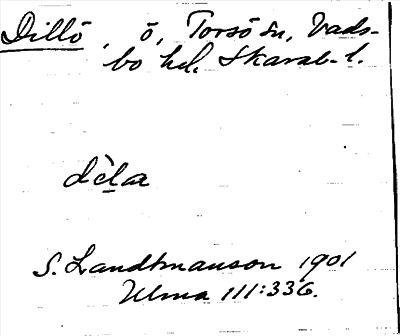 Dillö, ö, Torsö sn, Vads-
bo hd. Skarab. l.
dèla
S. Landtmanson 1901
Ulma 111:336.